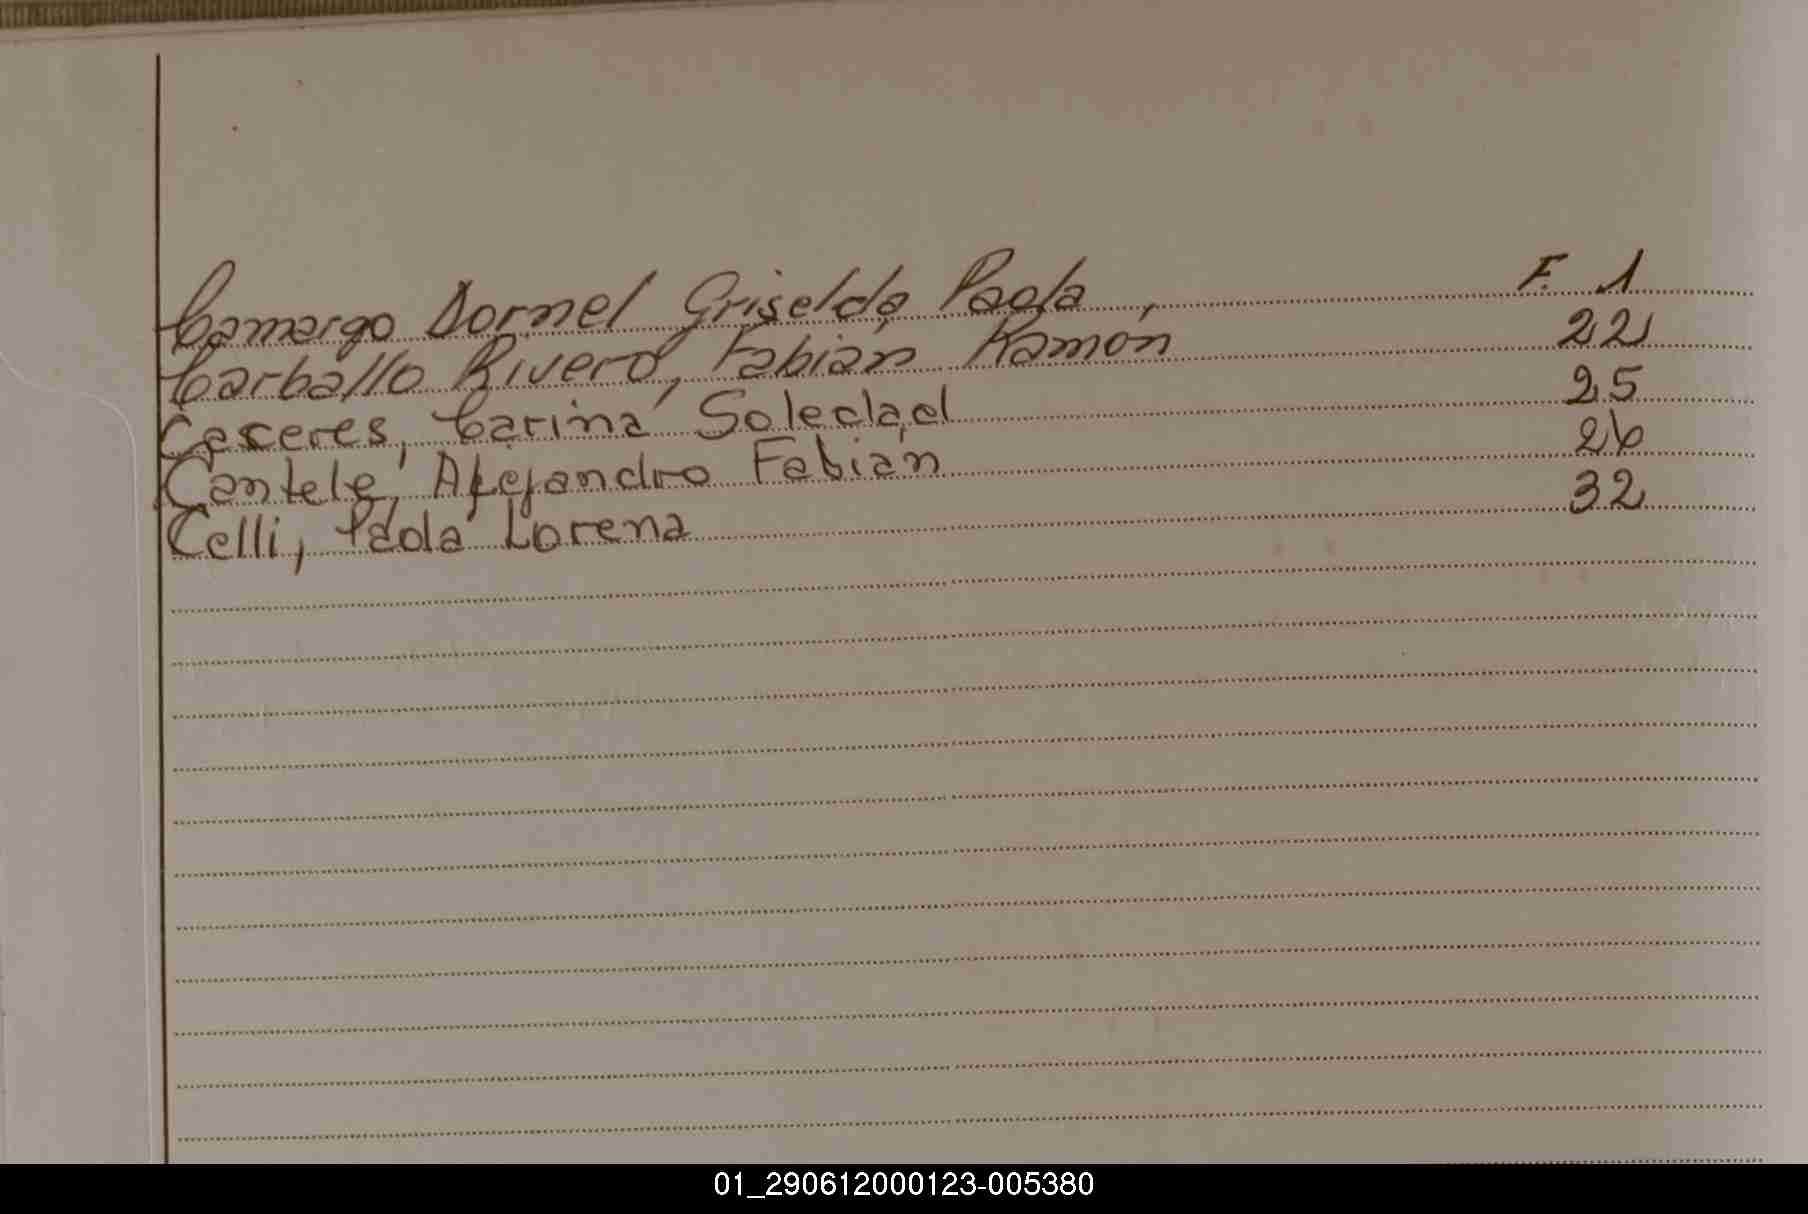 Camargo Dornel Griselda Paola, F. 1
Carballo Rivero, Fabián Ramón 22
Caceres, Carina Soledad 25
Cantele, Alejandro Fabián 26
Celli, Paola Lorena 32
01_290612000123-005380